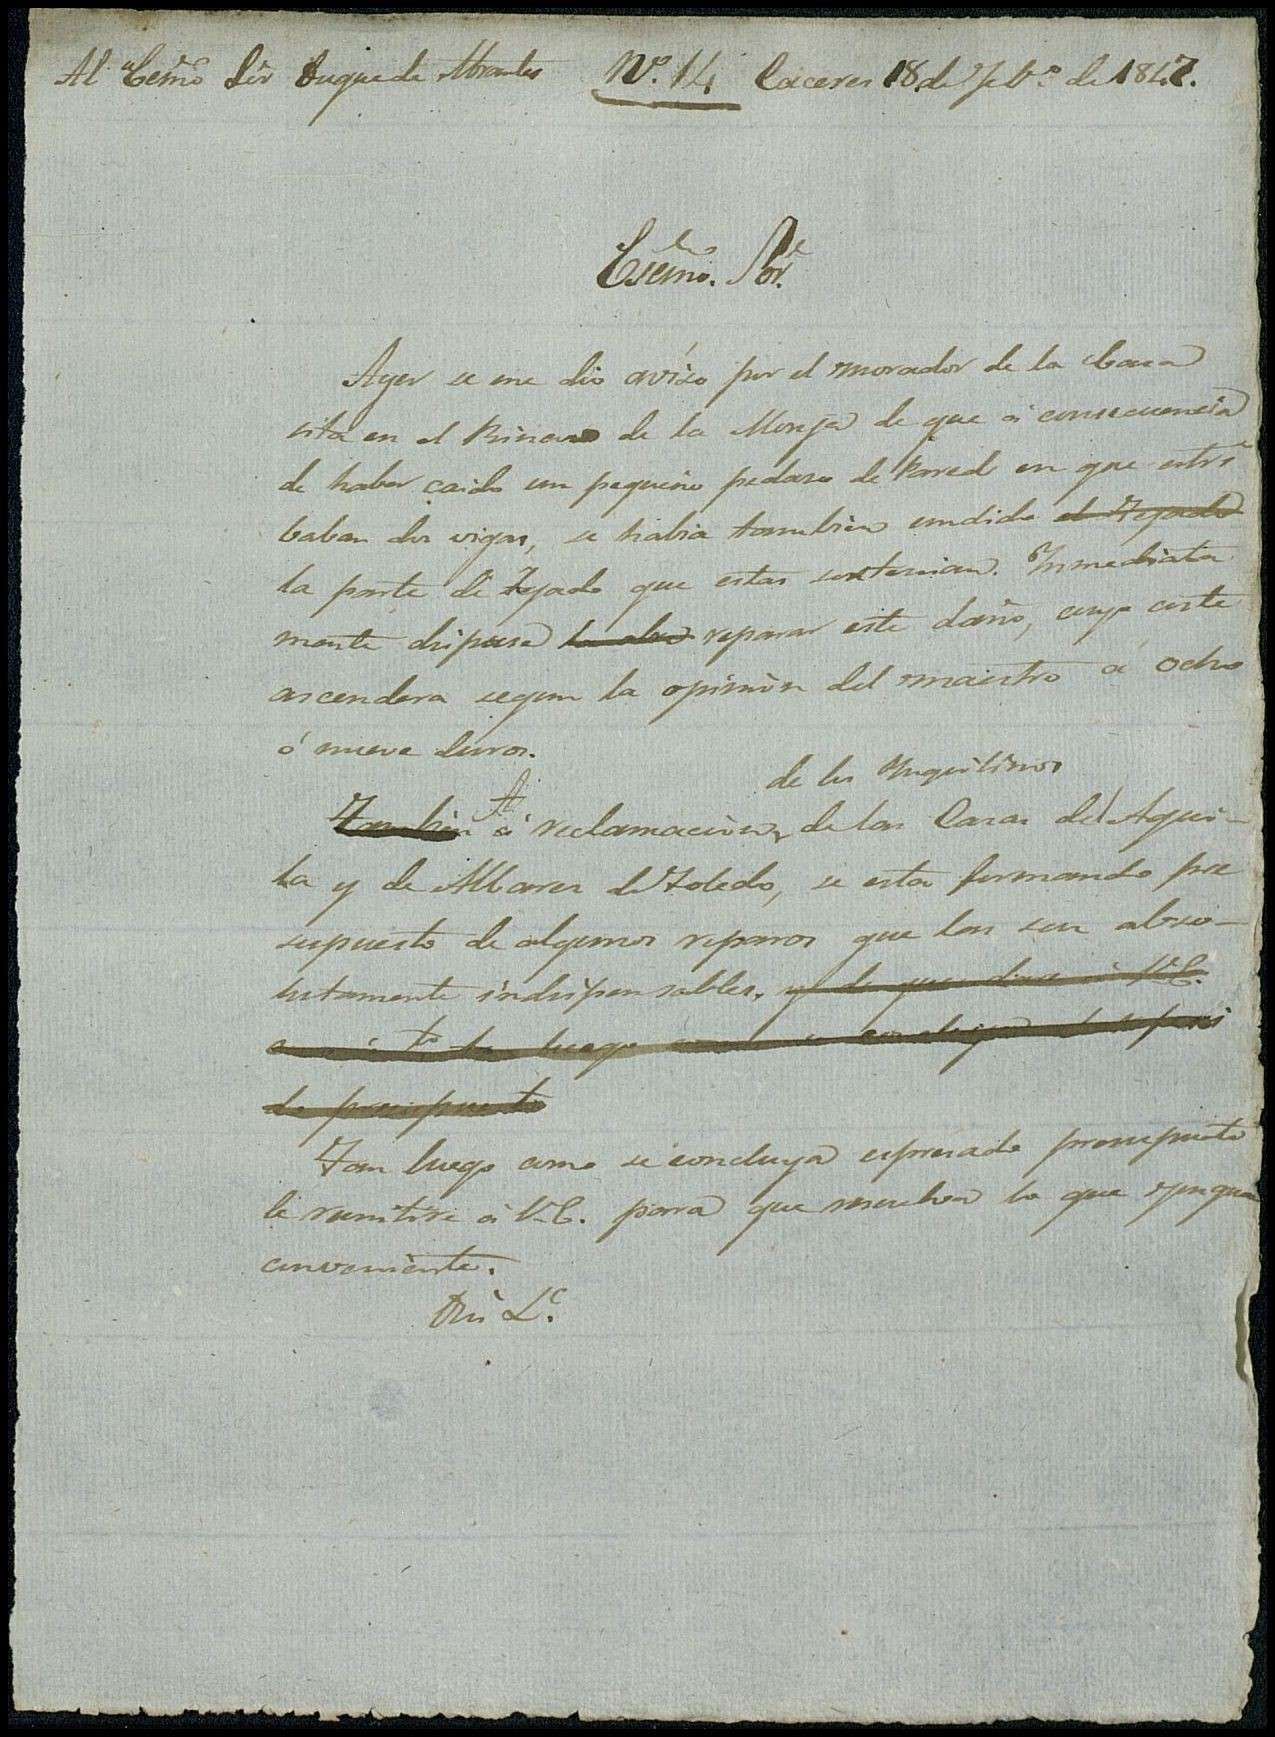 Al Escmo Sor Duque de Abrantes Nº. 14 Caceres 18 de Febº de 1847.
Escmo. Sor.
Ayer se me dio aviso por el morador de la Casa
sita en el Rincon de la Monja de que á consecuencia
de haber caido un pequeño pedaso de Pared en que estri
baban dos vigas, se habia tambien undido el Tejado
la parte de Tejado que estas sostenian. Inmediata
mente dispuse la obra reparar este daño, cuyo coste
ascendera segun la opinion del maestro á ocho
ó nueve duros.
de los Ynquilinos
Tambien A reclamacion de las Casas del Agui-
la y de Albares de Toledo, se esta formando pre
supuesto de algunos reparos que las son abso-
lutamente indispensables. y de que dare á V.E.
luego
de presupuesto
Tan luego como se concluya espresado presupuesto
le remitire á V.E. para que resuelva lo que tenga
conveniente.
Dios Lc.